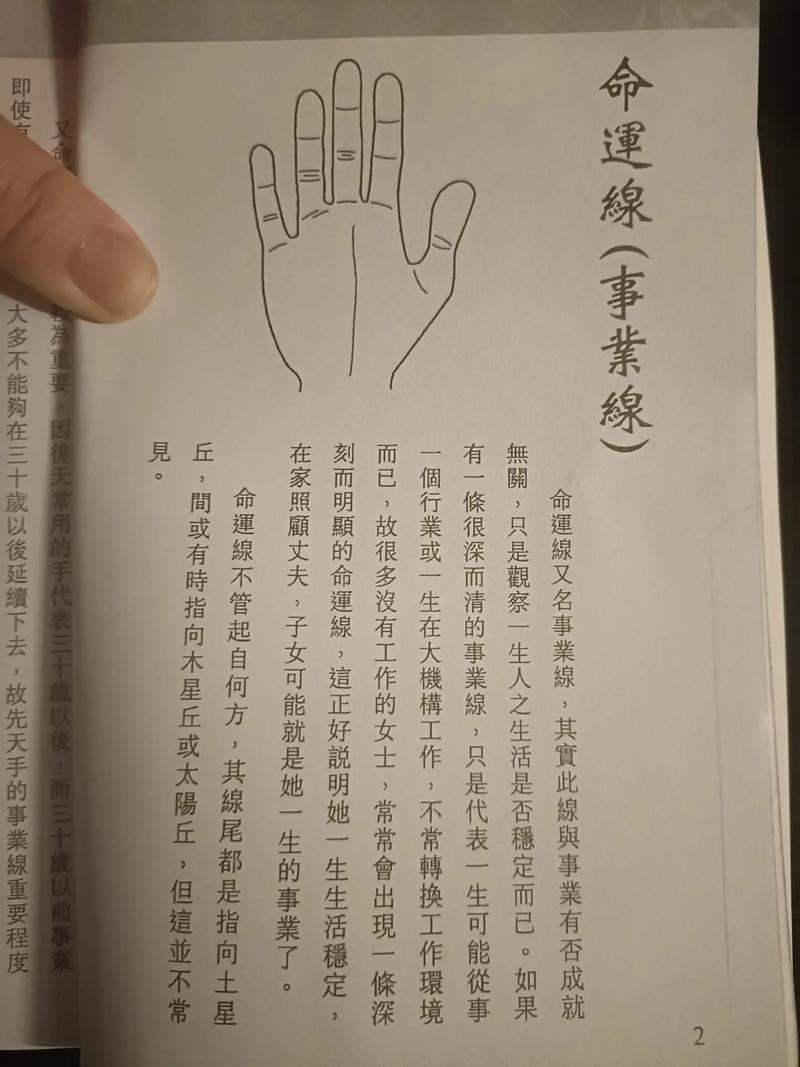 命運線(事業線)
命運線又名事業線，其實此線與事業有否成就
無關，只是觀察一生人之生活是否穩定而已。如果
有一條很深而清的事業線，只是代表一生可能從事
一個行業或一生在大機構工作，不常轉換工作環境
而已，故很多沒有工作的女士，常常會出現一條深
刻而明顯的命運線，這正好説明她一生生活穩定，
在家照顧丈夫，子女可能就是她一生的事業了。
命運線不管起自何方，其線尾都是指向土星
丘，間或有時指向木星丘或太陽丘，但這並不常
見。
2
又命
為重要，因後天常用的手代表三十歲以後，而三十歲以前事業
即使
大多不能夠在三十歲以後延續下去，故先天手的事業線重要程度